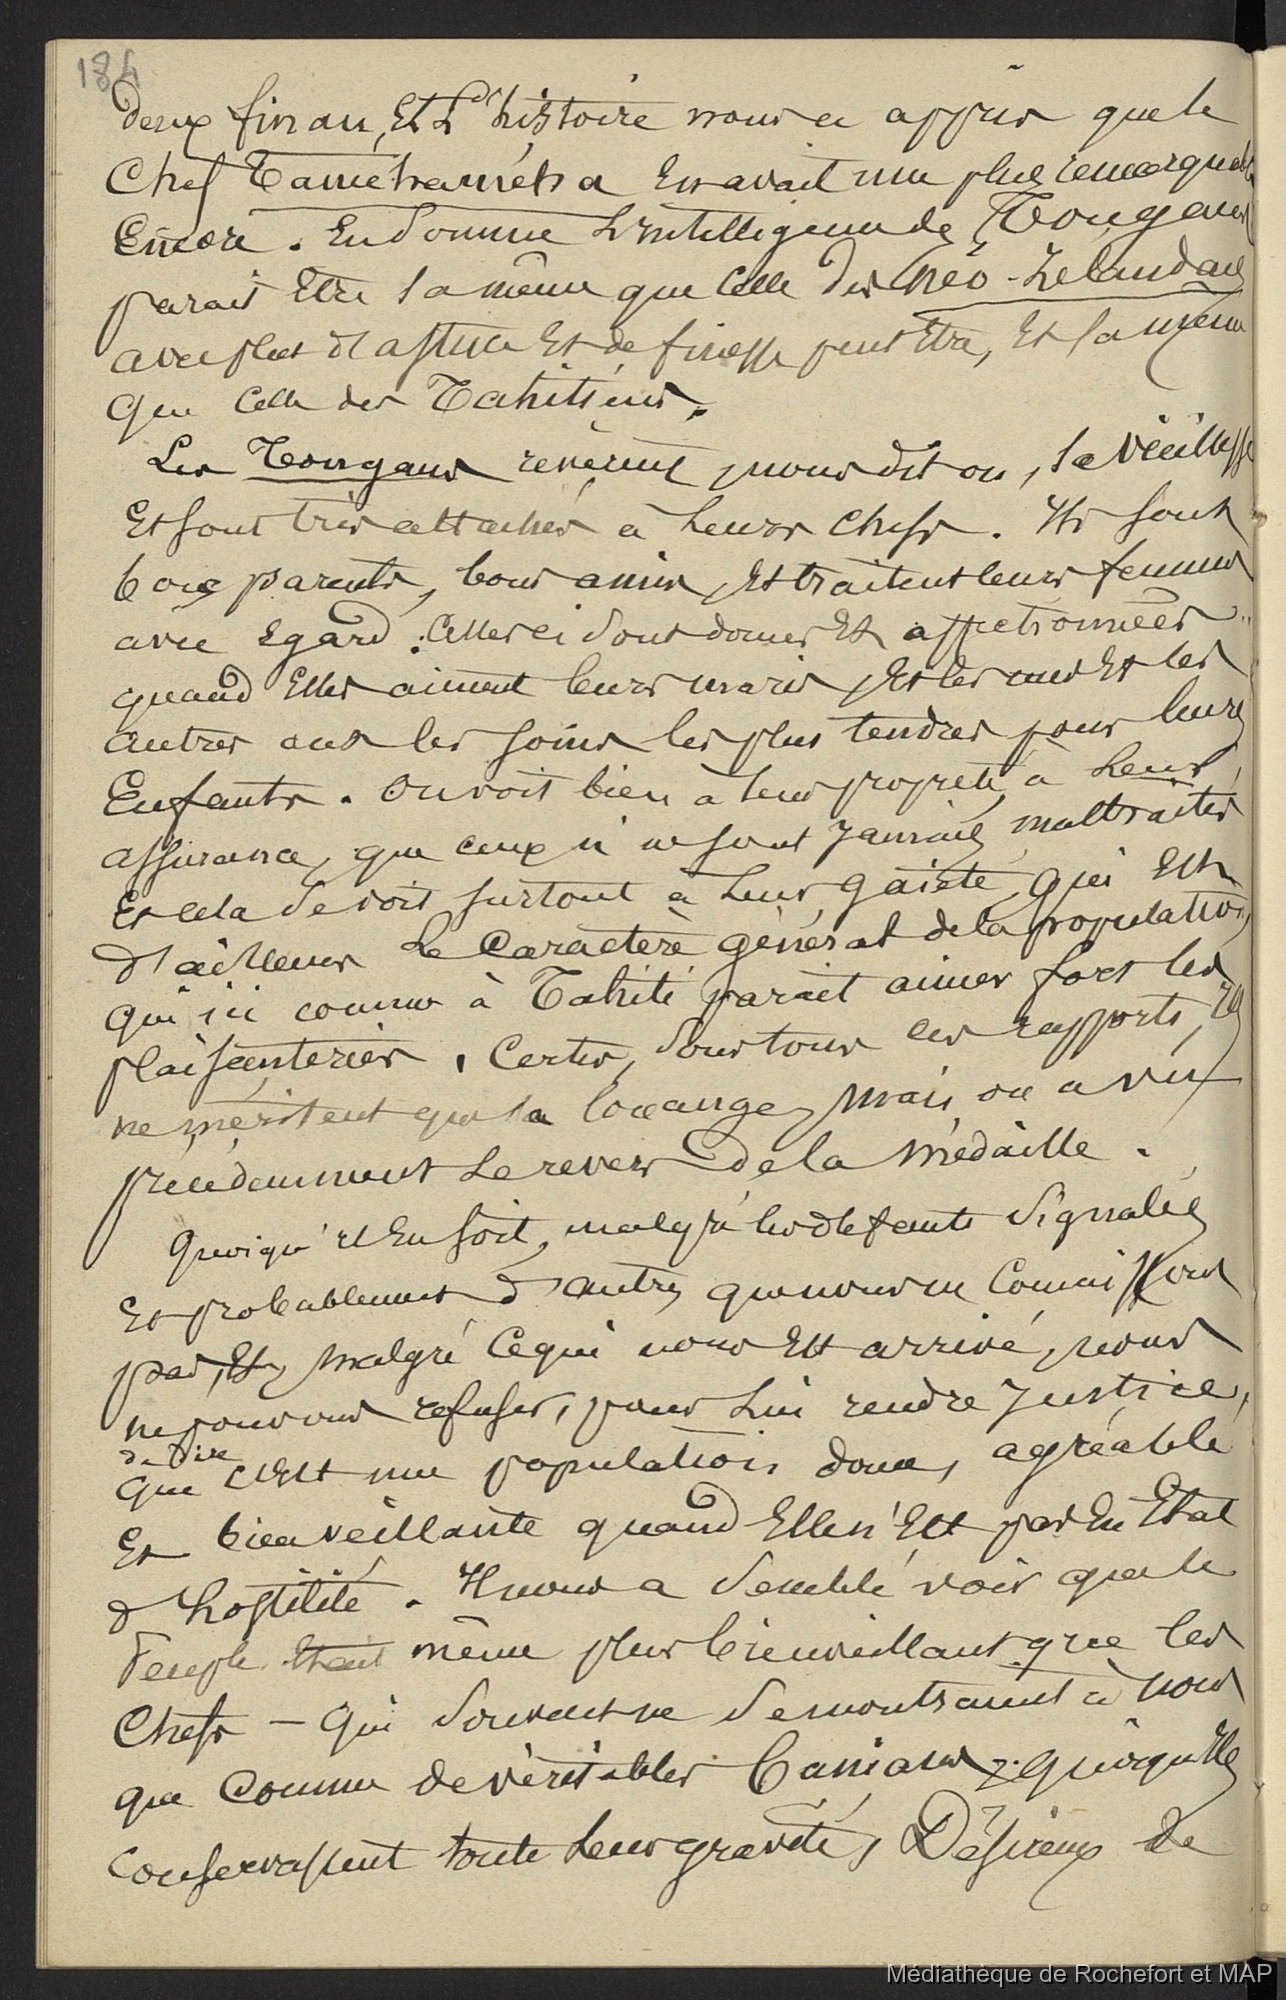 184
deux finau, Et L'histoire nous a appris que le
Chef Taméhaméha En avait une plus remarquable
Encore. En Somme L'intelligence des Tongans
parait Etre la même que Celle des Néo-Zélandais
avec plus d'astuce Et de finesse peut Etre, Et la même
que Celle des Tahitiens.
Les Tongans révèrent, nous dit on, la vieillesse
Et sont très attachés à Leurs chefs. Ils sont
bons parents, bons amis, Et traitent leurs femmes
avec Egard. Celles ci sont douces Et affectionnées
quand Elles aiment leurs maris, Et les unes Et les
autres ont les soins les plus tendres pour leurs
Enfants. On voit bien à leur propreté, à Leur
assurance, que ceux ci ne sont jamais maltraités
Et cela se voit surtout à Leur gaieté, qui Est
d'ailleurs Le Caractère général de la population,
qui ici comme à Tahiti parait aimer fort les
plaisanteries. Certes, sous tous ces rapports, ils
ne méritent que la louange, mais on a vu
précédemment Le revers de la médaille.
Quoiqu'il En soit, malgré les défauts signalés
Et probablement d'autres que nous ne Connaissons
pas, Et, malgré Ce qui nous Est arrivé, nous
ne pouvons refuser, pour Lui rendre justice,
de dire
que c'Est une population douce, agréable
Et bienveillante quand Elle n'Est pas En Etat
d'hostilité. Il nous a semblé voir que le
peuple Etait même plus bienveillant que les
Chefs — qui souvent ne se montraient à nous
que Comme de véritables Canaux, quoiqu'Ils
Conservassent toute Leur gravité, Désireux de
Médiathèque de Rochefort et MAP